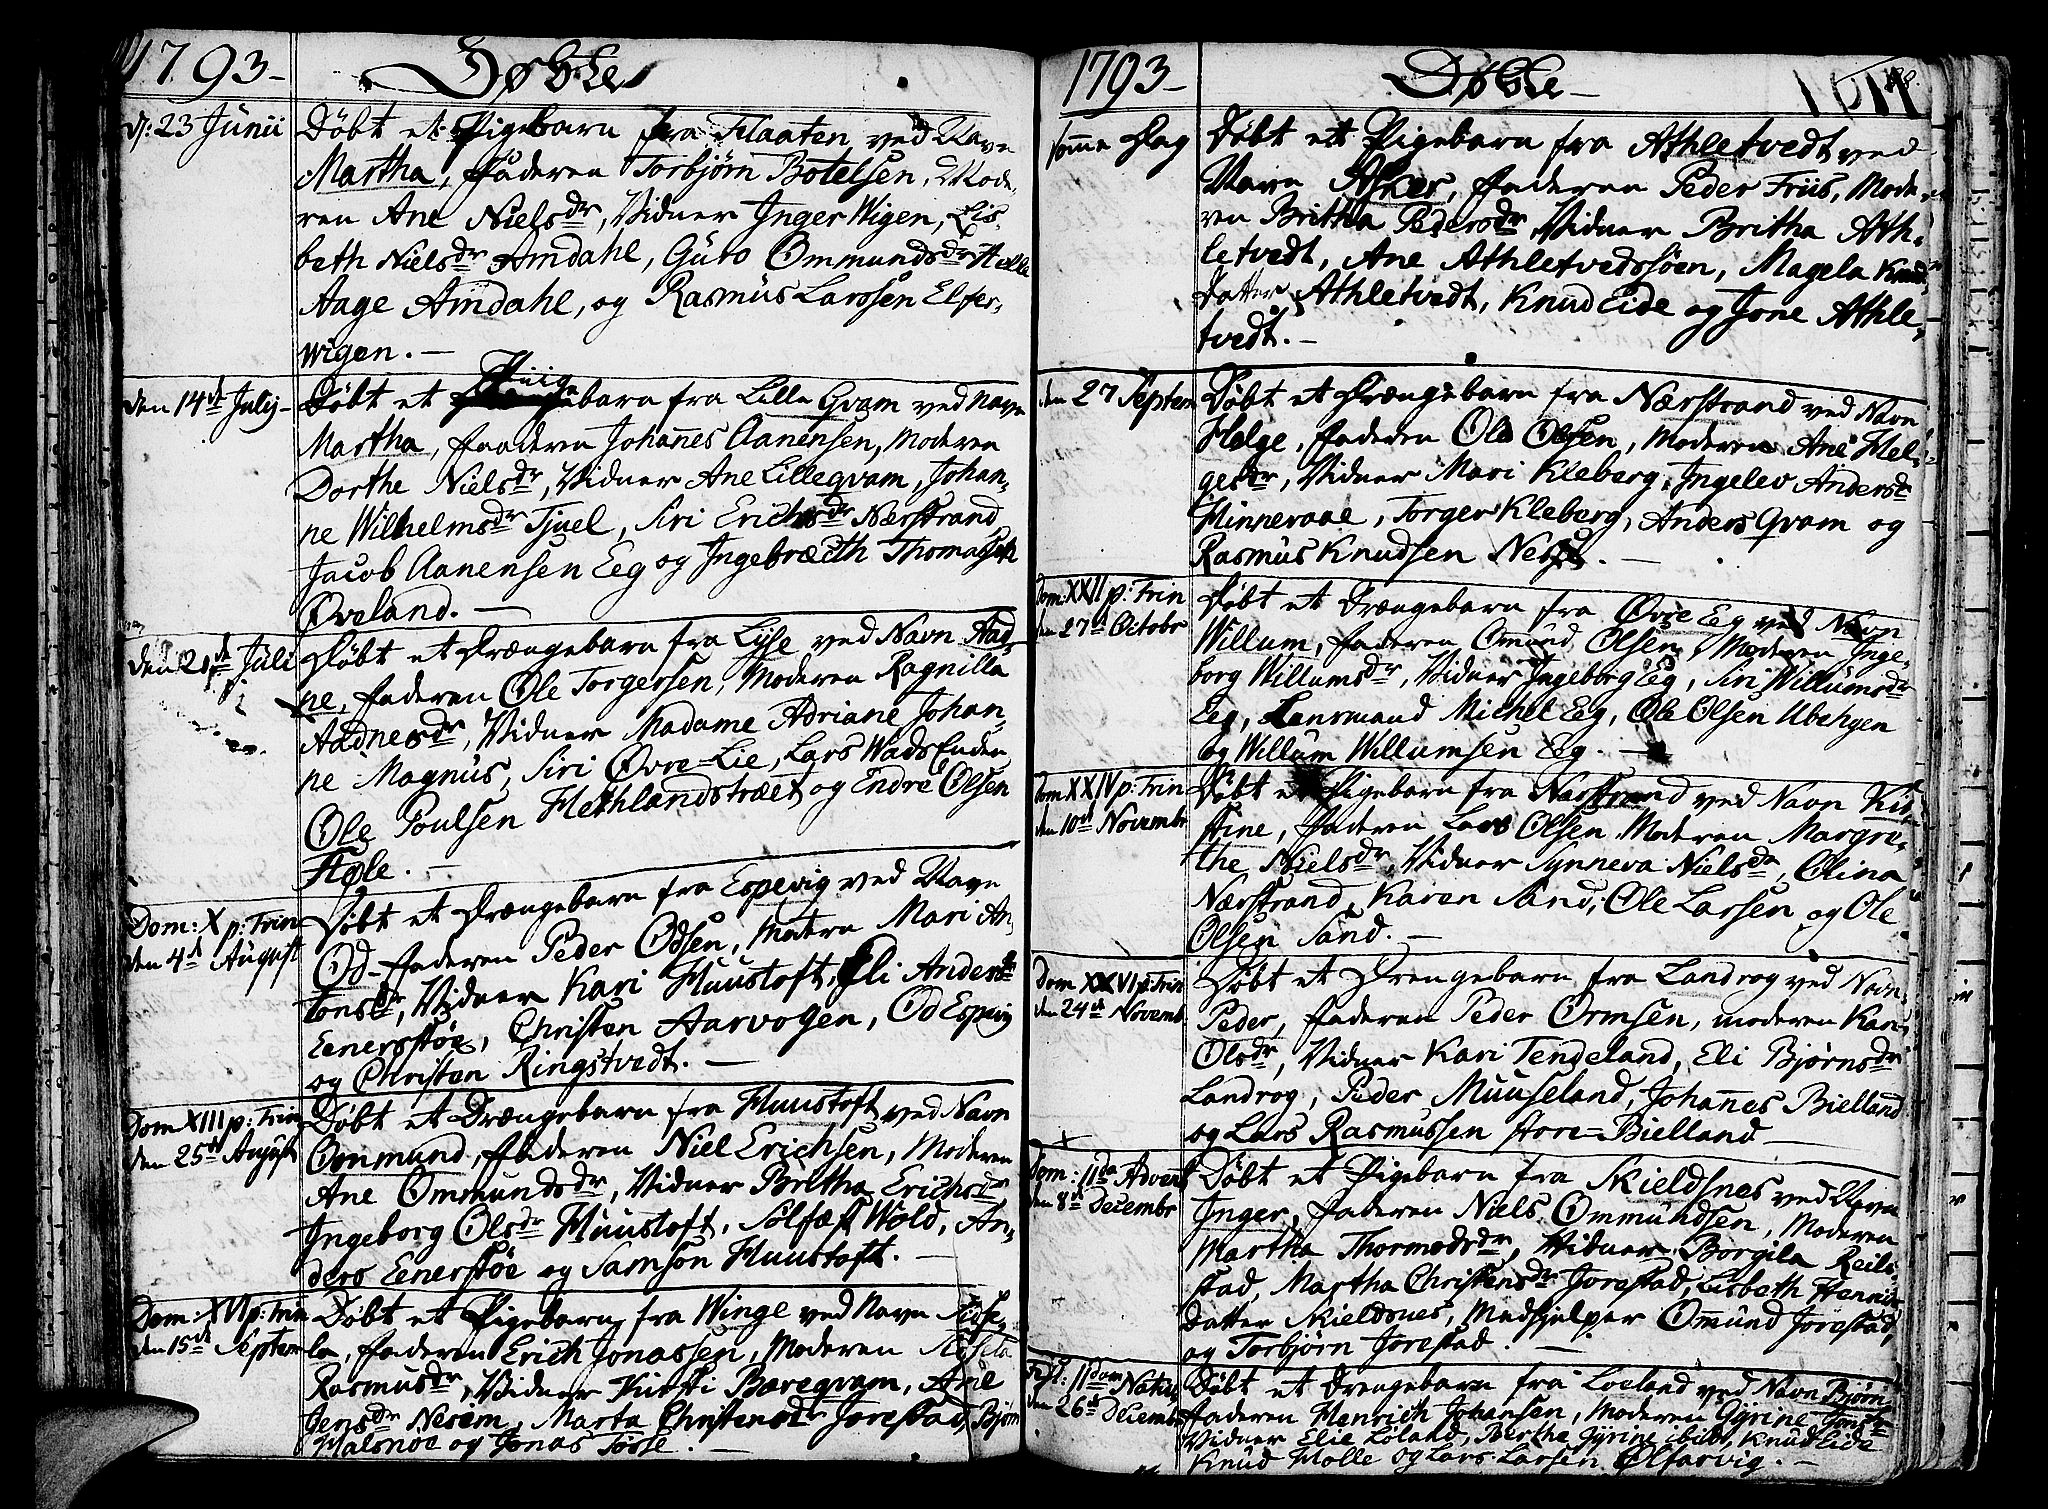 1793-
Døbte
d: 23 Junii
Døbt et Pigebarn fra Flaaten, ved Navn
Martha, Faderen Torbjørn Botelsen, Mode,
ren Ane Nielsdr, Vidner Inger Wigen, Lis,
beth Nielsdr Amdahl, Guro Ommundsdr Helle
Aage Amdahl, og Rasmus Larssen Elfer,
wigen. —
den 14de July
Døbt et Piigebarn fra Lille Qvam ved Navn
Martha, Faaderen Johannes Aanensen, Moderen
Dorthe Nielsdr, Vidner Ane Lilleqvam, Johan,
ne Wilhelmsdr Tjuel, Siri Erichsdr Nærstrand
Jacob Aanensen Eeg og Ingebræcth Thomassen
Øveland. —
den 21de Juli
Døbt et Drængebarn fra Lyse ved Navn Aad,
ne, Faderen Ole Torgersen, Moderen Ragnilla
Aadnesdr, Vidner Madame Adriane Johan,
ne Magnus, Siri Øvre-Lie, Lars WadsEnden
Ole Poulsen Hethlandstræet og Endre Olsen
Høle. —
Dom: X p: Trin
den 4d August
Døbt et Drængebarn fra Espevig ved Navn
Od- Faderen Peder Odsen, Modren Mari An,
tonsdr, Vidner Kari Huustoft, Eli Andersdr
Eenerstøe, Christen Aarvogen, Od Espevig
og Christen Ringstvedt. —
Dom XIII p: Trin
den 25d August
Døbt et Drængebarn fra Huustoft ved Navn
Ommund, Faderen Niel Erichsen, Moderen
Ane Ommundsdr, Vidner Britha Erichsdr
Ingeborg Olsdr Huustoft, Sølfæst Wold, An,
ders Eenerstøe og Samson Huustoft. —
Dom: XVI p: Trin
den 15d Septem
Døbt et Pigebarn fra Winge ved Navn
la, Faderen Erich Jonassen, Moderen
Rasmusdr, Vidner Kirsti Bareqvam, Ane
Jensdr Nesem, Marta Christensdr Jorestad, Bjørn
Halsnøe og Jonas Tøsse. —
1793-
Døbte —
samme Dag
Døbt et Pigebarn fra Athletvedt ved
Navn, Faderen Peder Friis, Mode,
ren Britha Pedersdr, Vidner Britha Ath,
letvedt, Ane Athletvedssøen, Magela Knuds
Datter Athletvedt, Knud Eide og Jone Athle,
tvedt. —
den 27 Septem
Døbt et Drængebarn fra Nærstrand ved Navn
Helge, Faderen Ole Olsen, Moderen Ane Hel,
gesdr, Vidner Mari Kleberg, Ingelev Andersdr
Hinneraae, Torger Kleberg, Anders Qvam og
Rasmus Knudsen. —
Dom: XXII p: Trin
den 27d Octobr
Døbt et Drængebarn fra Øvre Eeg ved Navn
Willum, Faderen Omund Olsen, Moderen Inge,
borg Willumsdr, Vidner Ingeborg Eeg, Siri Willumsdr
Eeg, Lensmand Michel Eeg, Ole Olsen
og Willum Willumsen Eeg. —
Dom XXIV p: Trin
den 10d Novembr
Døbt et Pigebarn fra Nærstrand ved Navn Kir,
stine, Faderen Lars Olsen Moderen Margre,
the Nielsdr, Vidner Synneva Nielsdr, Olina
Nærstrand, Karen Sand, Ole Larsen, og Ole
Olsen Sand. —
Dom XXVI p: Trin
den 24d Novemb
Døbt et Drengebarn fra Landrog ved Navn
Peder, Faderen Peder Ormsen, moderen Kari
Olsdr, Vidner Kari Tendeland, Eli Bjørnsdr
Landrog, Peder Muuseland, Johannes Bielland
og Lars Rasmussen store-Bielland —
Dom: IIda Advent
den 8d Decembr
Døbt et Pigebarn fra Kieldsnes ved Navn
Inger, Faderen Niels Ommundsen, Moderen
Martha Thormodsdr, Vidner Borgila Reils,
stad, Martha Christensdr Jorestad, Lisbeth Henrik
Datter Kieldsnes, Medhjelper Omund Jorestad,
og Torbjørn Jorestad. —
Fest: IIdom Nativ
den 26d Decemb
Døbt et Drengebarn fra Loeland ved Navn Bjørn
Faderen Henrich Johansen, Moderen Gyrine
Vidner Elie Løland, Bertha Gyrine ibid, Knud Eide
Knud Holle og Lars Larsen Ølfarvig. —